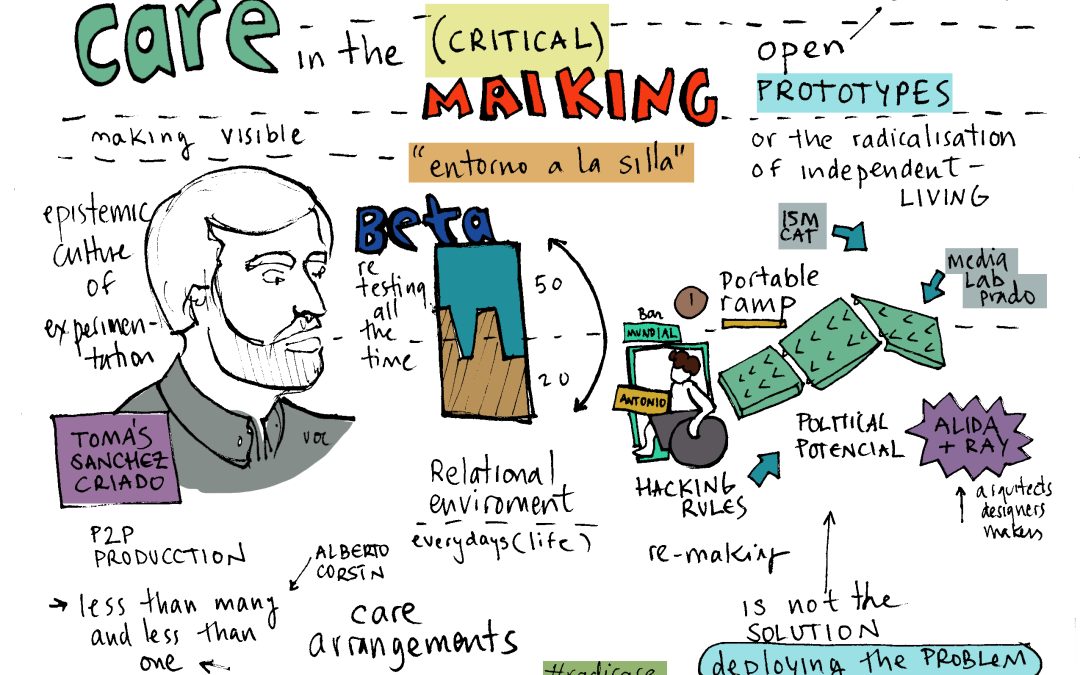 care
in the
(CRITICAL)
MAIKING
making visible
"entorno a la silla"
open
PROTOTYPES
or the radicalisation
of independent-
LIVING
epistemic
culture
of
experimen-
tation
TOMÁS
SANCHEZ
CRIADO
VOC
Beta
re
testing
all
the
time
50
20
15M
CAT
Media
Lab
prado
1
PORTABLE
ramp
Bar
MUNDIAL
ANTONIO
HACKING
RULES
POLITICAL
POTENCIAL
ALIDA
+ RAY
arquitects
designers
makers
Relational
enviroment
everydays (life)
P2P
PRODUCCTION
ALBERTO
CORSÍN
→ less than many
and less than
one ←
care
arrangements
re-making
IS not the
SOLUTION
deploying the PROBLEM
#radicare